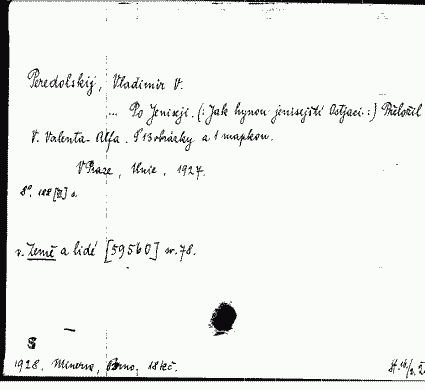 Peredolskij, Vladimír V.
... Po Jeniseji. (: Jak hynou jenisejští Ostjaci :) Přeložil
V. Valenta-Alfa. S 13 obrázky a 1 mapkou.
V Praze, Unie, 1927.
8°. 188 [III] s.
v. Země a lidé [59560] sv. 78.
S
1928. Minerva, Brno, 18 Kč.